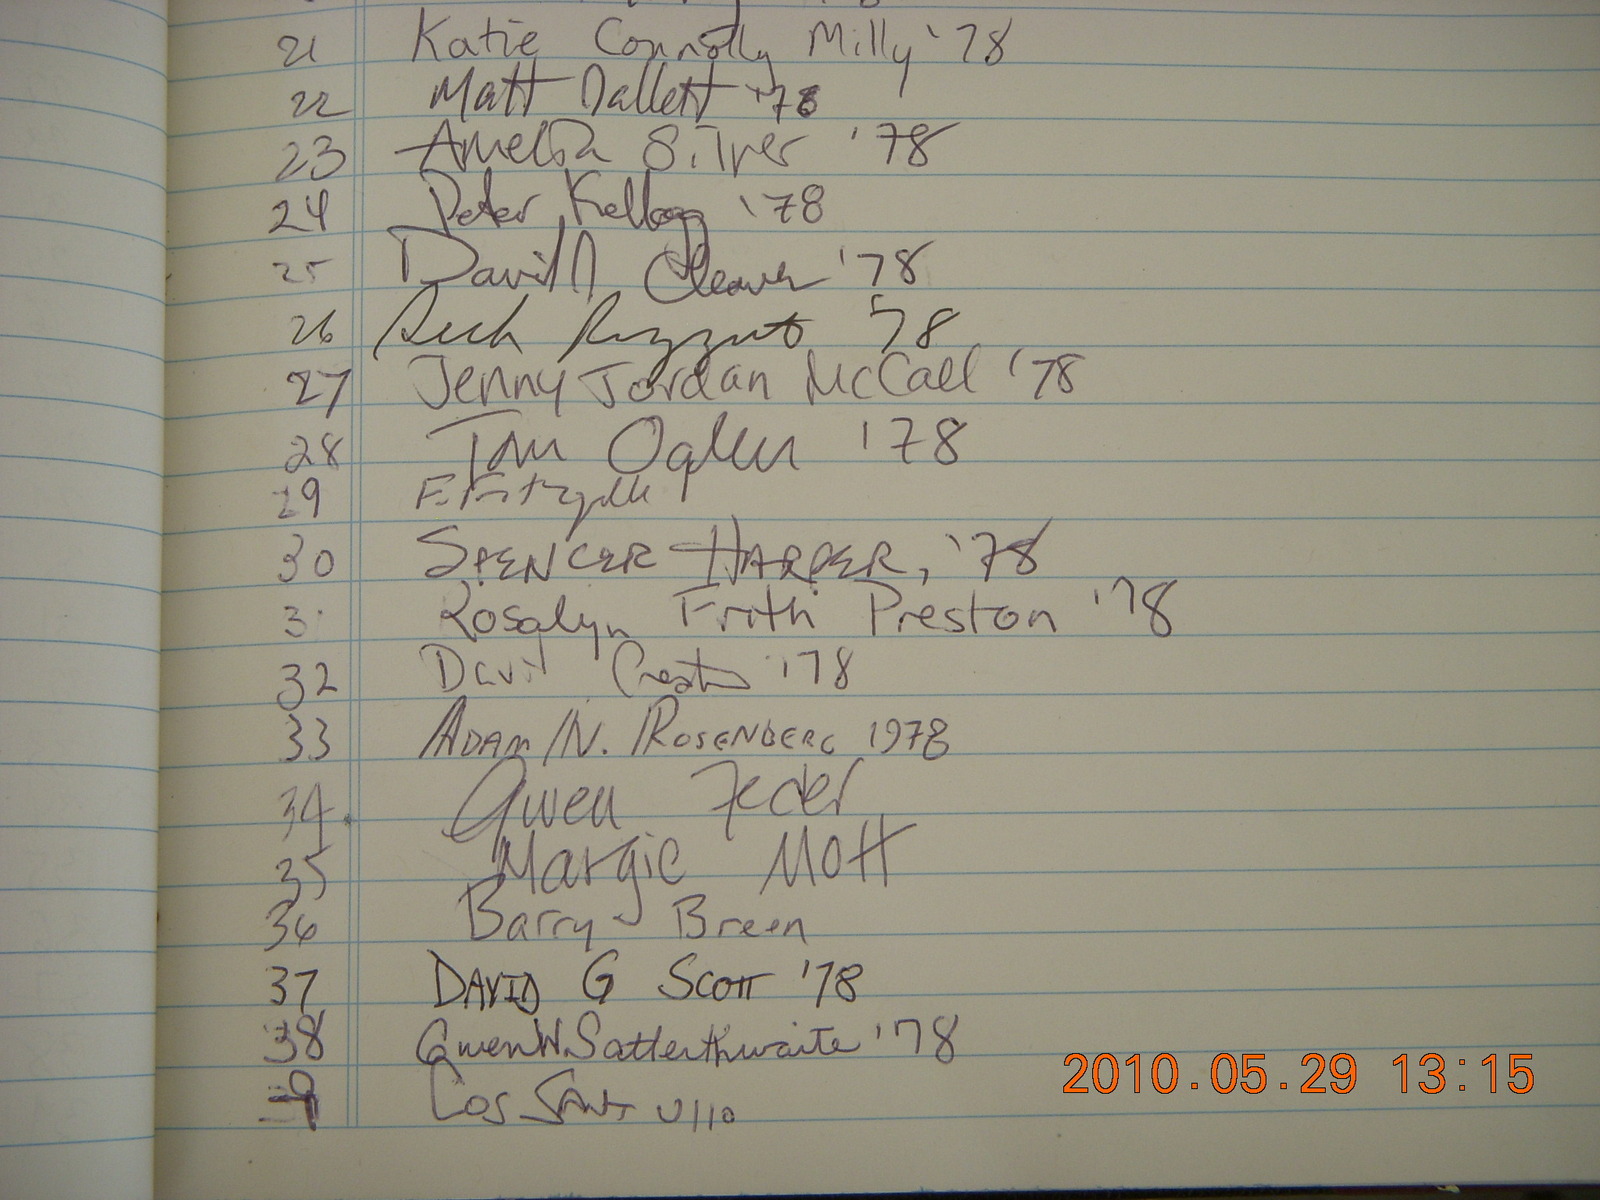 21 Katie Connolly Milly '78
22 Matt Dallett '78
23 Amelia Silver '78
24 Peter Kellogg '78
25 David Cleaver '78
26 Rick Rizzuto '78
27 Jenny Jordan McCall '78
28 Tom Ogden '78
29 F.
30 SPENCER HARPER, '78
3 Rosalyn Frith Preston '78
32 David '78
33 ADAM N. ROSENBERG 1978
34 Gwen Feder
35 Margie Mott
36 Barry Breen
37 DAVID G SCOTT '78
38 Gwen W. Satterthwaite '78
39
2010.05.29 13:15